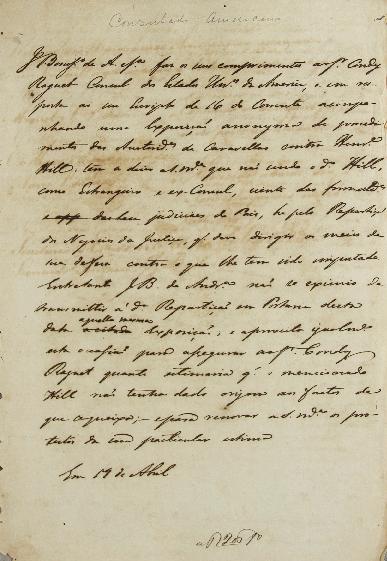 Consulado Americano
J. Bonif.º de A. faz os seus comprimentos ao Sr. Condy
Raguet Consul dos Estados Un.ºs da America, e em res
posta ao seu Escripto de 16 do Corrente acompa-
nhando uma Exposição anonyma do procedi-
mento das Autorid.es de Caravellas contra Henr.º
Hill; tem a dizer a S. M.ce que não sendo o d.º Hill,
como Estrangeiro e ex-Consul, isento das formalid.es
judiciaes do Paiz, he pela Repartição
dos Negocios da Justiça, q. deve dirigir os meios de
sua defeza contra o que lhe tem sido imputado
Entretanto J. B. de Andr.ª não se eximio de
transmittir á d.ª Repartição em Portaria desta
data aquella mesma Exposição, e aproveita igualm.e
esta occasião para assegurar ao Sr. Condy
Raguet quanto estimaria q. o mencionado
Hill não tenha dado origem aos factos de
que se queixa; e para renovar a S. M.ce os pro-
testos da sua particular estima
Em 19 de Abril